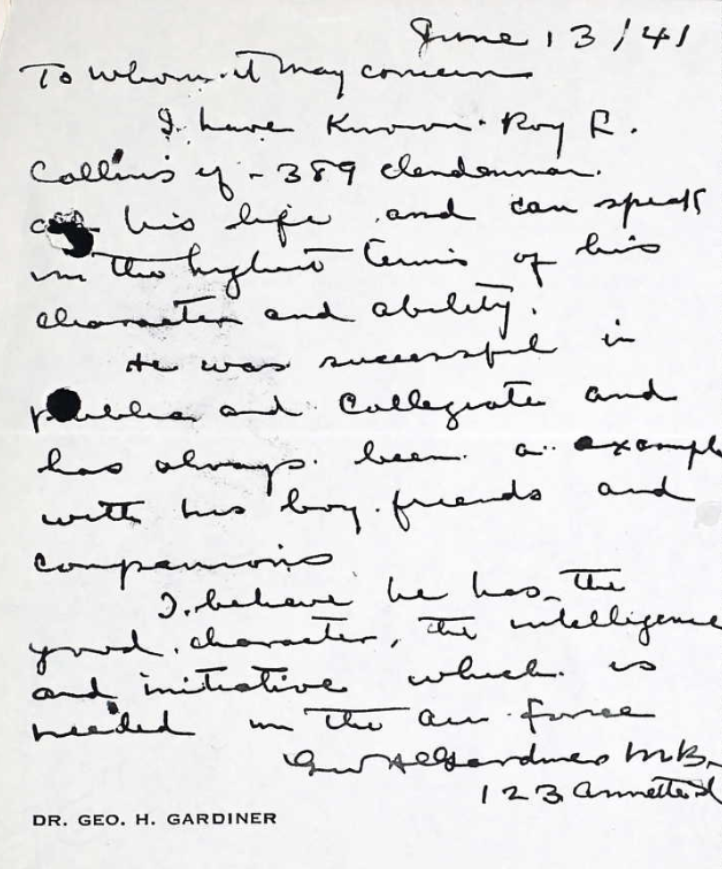 June 13/41
To whom it may concern
I have known Roy R.
Collins of - 389 Clendennan.
all his life and can speak
in the highest terms of his
character and ability.
He was successful in
public and Collegiate and
has always been a exampl
with his boy friends and
companions
I believe he has the
good character, the intelligence
and initiative which is
needed in the air force
Geo H Gardiner M.B.
123 Annette St
DR. GEO. H. GARDINER